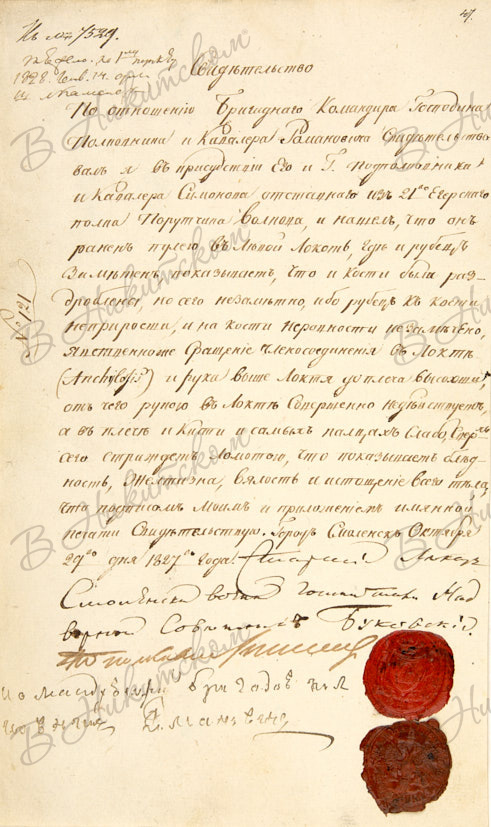 47.
К № 7529.
1828. Генв. 14.
Свидѣтельство
По отношенію Бригаднаго Командира Господина
Полковника и Кавалера Романовича Свидѣтельство
валъ я въ присудствіи Его и Г. Подполковника
и Кавалера Симонова отставнаго изъ 21го Егерскаго
полка Порутчика Волкова, и нашелъ, что онъ
раненъ пулею въ лѣвой Локоть, гдѣ и рубецъ
Замѣтенъ, показываетъ, что и кость была раз-
дроблена, но сего незамѣтно, ибо рубецъ къ кости
неприросъ, и на кости неровности незамѣчено,
явственное Сращеніе членосоединенія въ Локтѣ
(Anchylosis) и рука выше Локтя до плеча высохши,
отъ чего рукою въ Локтѣ Совершенно недѣйствуетъ,
а въ плечѣ и Кисти и самыхъ пальцахъ Слабо, Сверхъ
сего страждетъ Ломотою, что показываетъ блѣд-
ность, Желтизна, вялость и истощеніе всего тѣла,
что подписомъ Моимъ и приложеніемъ имянной
печати Свидѣтельствую. Городъ Смоленскъ Октября
29го дня 1827го Года. Старшій Лекарь
Смоленскаго военнаго госпиталя Над
ворной Совѣтникъ Буковскій.
Подполковникъ
Командиръ бригадой пол
№ 121
В Никитском